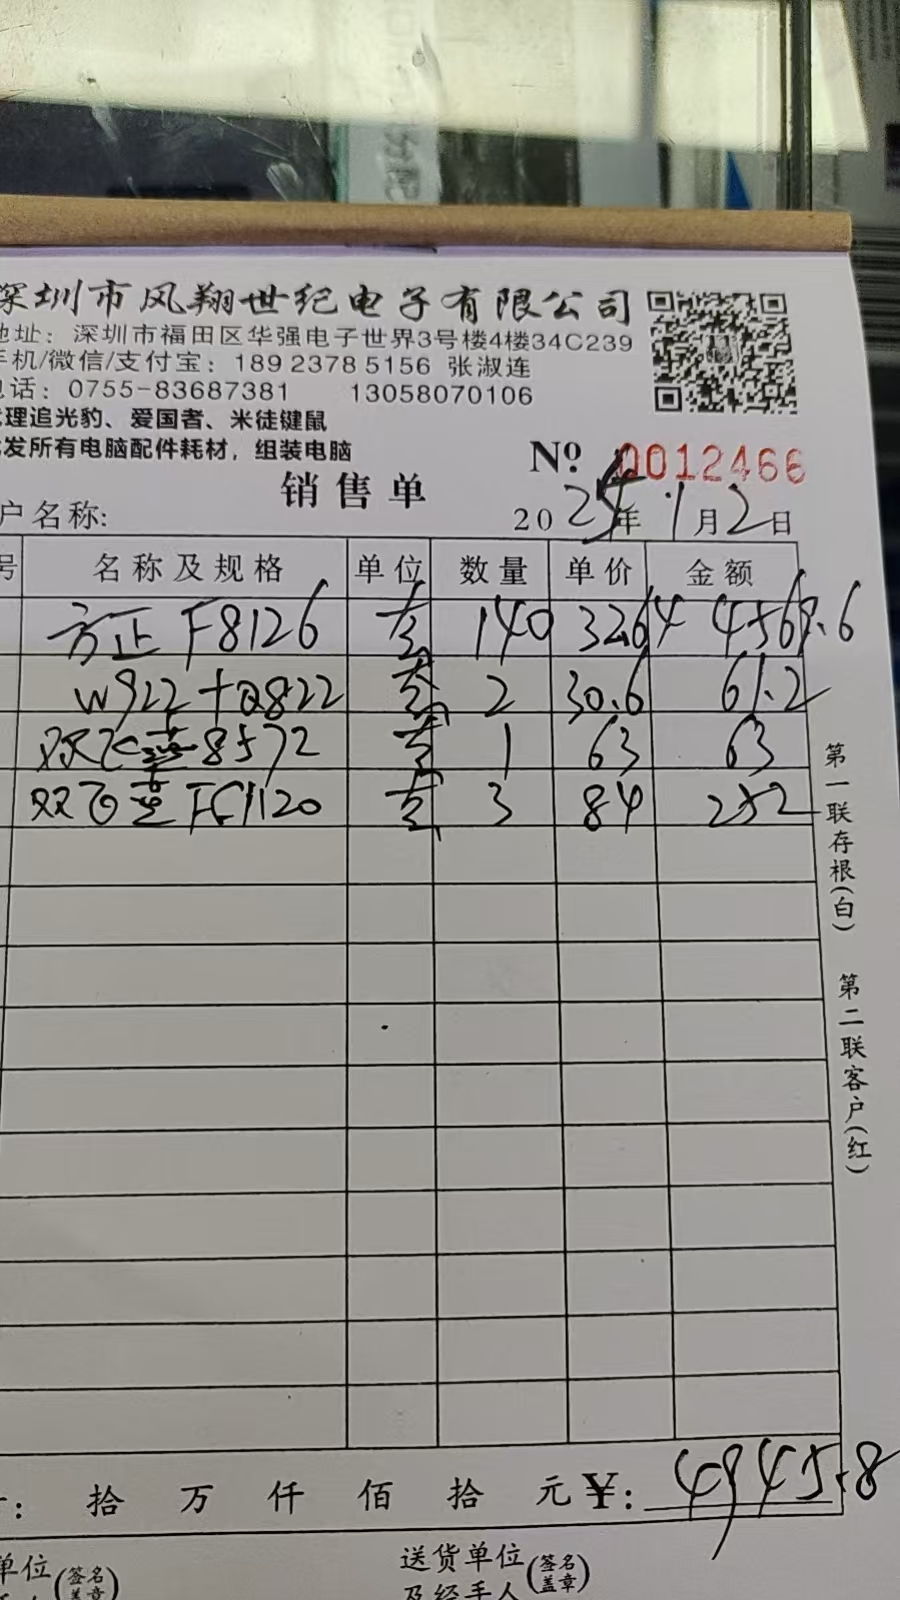 深圳市风翔世纪电子有限公司
地址：深圳市福田区华强电子世界3号楼4楼34C239
手机/微信/支付宝：189 2378 5156 张淑连
电话：0755-83687381 13058070106
代理追光豹、爱国者、米徒键鼠
批发所有电脑配件耗材，组装电脑
№ 0012466
销售单
户名称:
2025年1月2日
号 名称及规格 单位 数量 单价 金额
方正 F8126 套 140 32.64 4569.6
W922+Q822 套 2 30.6 61.2
双飞燕 8572 套 1 63 63
双飞燕 FG1120 套 3 84 252
拾 万 仟 佰 拾 元 ¥: 4945.8
单位(签名盖章)
送货单位及经手人(签名盖章)
第一联存根(白)
第二联客户(红)